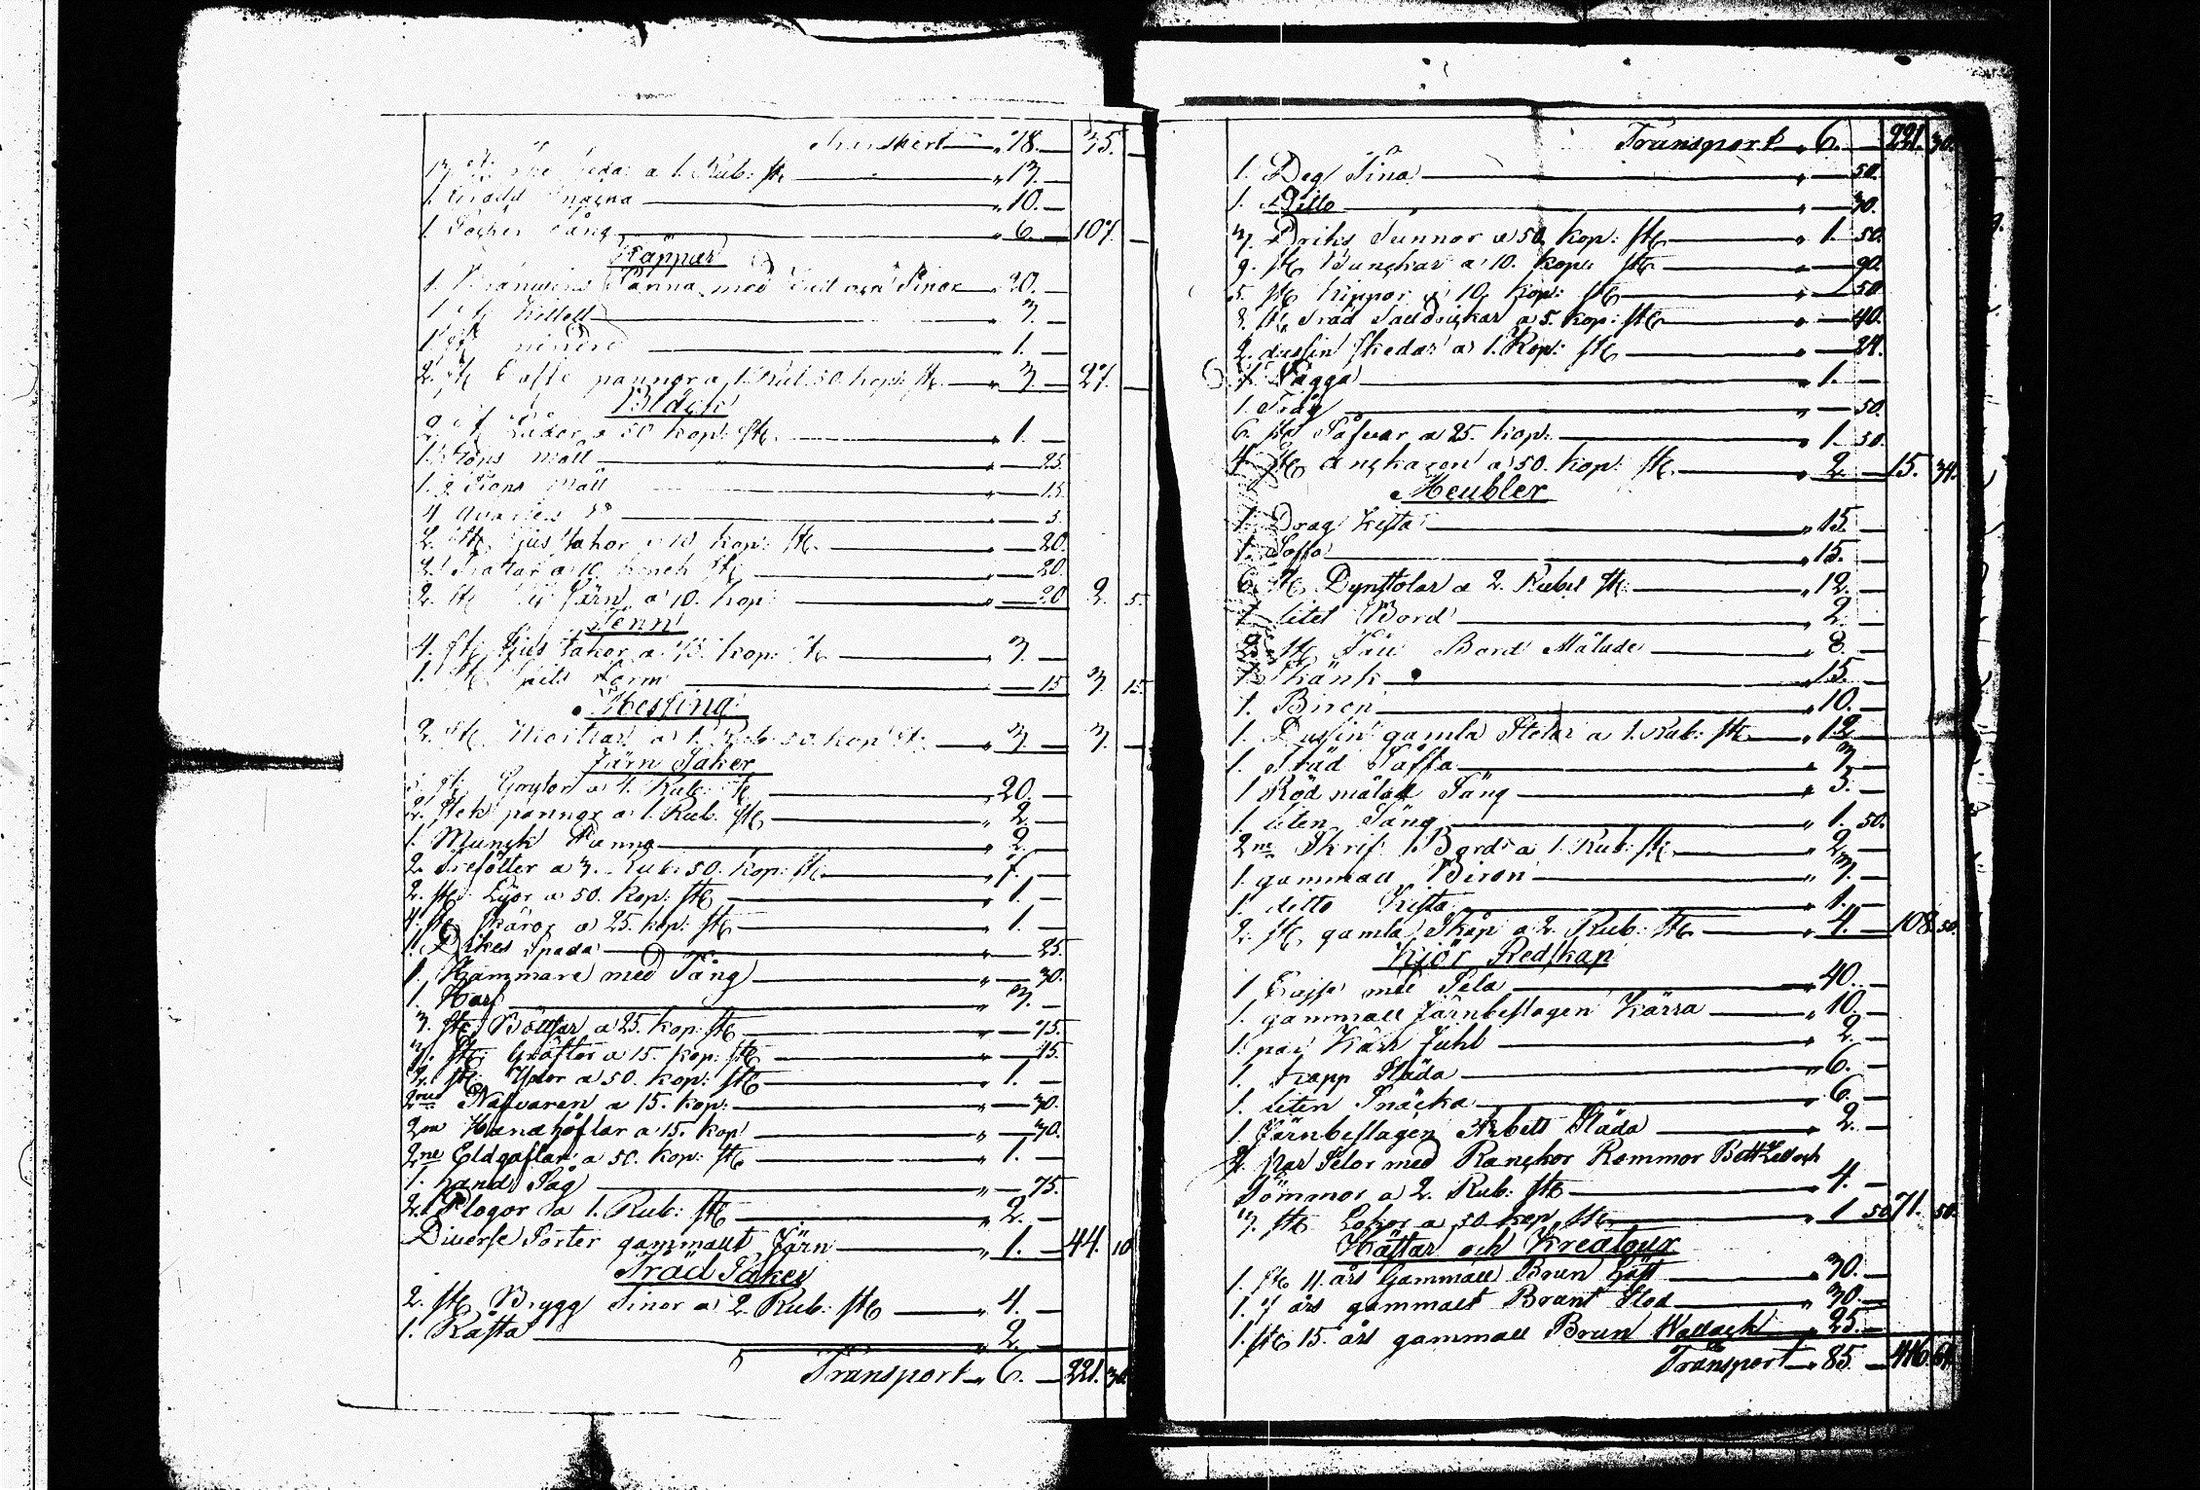 Transport 18. — 35. —
a 1. Rub: st. — 13. —
1. — 10. —
1. Socker Tång — 6. — 107. —
Koppar
1. Bränwins Panna med och Pinor — 20. —
1 st. Kittell — 3. —
1 mindre — 1. —
2. st. Caffe pannor a 1. Rub. 50. kop: st. — 3 — 27. —
Bläck
2 st. Lådor a 50 kop: st. — 1. —
1. Mått — 25.
1. Mått — 15.
4 — 5.
2. st. Ljusstakor a 10 kop: st. — 20.
2. Trattar a 10. kopek st. — 20.
2. st. Järn a 10. kop: — 20 2. 5.
Tenn
4. st. Ljusstakor a 75. kop: st. — 3. —
1. st. Form — 15 3. 15
Messing
2. st. Mortlar a 1. Rub. 50. kop st. — 3. — 3. —
Järn Saker
5 st. Grytor a 4. Rub: st. — 20. —
2. Stek pannor a 1. Rub. st. — 2. —
1. Munck Panna — 2. —
2. Trefötter a 3. Rub: 50. kop: st. — 7. —
2. st. Lijor a 50. kop: st. — 1. —
4. st. Skäror a 25. kop: st. — 1. —
1. Dikes Spada — 25.
1. Hammare med Tång — 30.
1. Harf — 3. —
3. st. Böttjar a 25. kop: st. — 75.
3. st. Gräftor a 15. kop: st. — 45.
2. st. Yxor a 50. kop: st. — 1. —
2ne Nafvaren a 15. kop: — 30.
2ne Handhöflar a 15. kop — 30.
2ne Eldgaflar a 50. kop: st. — 1. —
1. hand Såg — 75.
2. Plogor a 1. Rub: st. — 2. —
Diverse Sorter gammalt Järn — 1. — 44. 10
Träd Saker
2. st. Brygg Tinor a 2. Rub: st. — 4. —
1. Kasta — 2. —
Transport 6. — 221. 30.
Transport 6. — 221. 30.
1. Deg Tina — 50.
1. Ditto — 30.
3. Driks Tunnor a 50 kop: st. — 1. 50.
9. st. Bunckar a 10. kop: st. — 90.
5. st. Kippor a 10. kop: st. — 50.
8. st. Träd Talldrickar a 5. kop: st. — 40.
2. dussin Skedar a 1. Kop: st. — 24.
1. Vagga — 1. —
1. Tråg — 50.
6. st. Såfvar a 25. kop: — 1. 50.
4. st. Anckaren a 50. kop: st. — 2. — 15. 34.
Meubler
1. Drag Kista — 15. —
1. Soffa — 15. —
6. st. Dynstolar a 2. Rubel st. — 12. —
1. litet Bord — 2. —
2. st. Fäll Bord Målade — 8. —
1. Skänk — 15. —
1. Biron — 10. —
1. Dussin gamla Stolar a 1. Rub: st. — 12 —
1. Träd Saffa — 3 —
1 Röd målad Säng — 3. —
1. liten Säng — 1. 50.
2ne Skrif Bord a 1. Rub: st. — 2. —
1. gammall Biron — 3. —
1. ditto Kista — 1. —
2. st. gamla Skåp a 2. Rub: st. — 4. — 108. 50.
Kjör Redskap
1 med Sela — 40. —
1. gammall Järnbeslagen Kärra — 10. —
1. par Kärr Juhl — 2. —
1. Trapp Släda — 6. —
1. liten Snäcka — 6. —
1. Järnbeslagen Arbets Släda — 2. —
2. Par Selor med Ranckor Remmor och
Tömmor a 2. Rub: st. — 4. —
3. st. Lokor a 50 kop st. — 1 50 71. 50.
Hästar och Kreatour
1. st. 11. års Gammall Brun Häst — 30. —
1. 7 års gammalt Brunt Stod — 30. —
1. st. 15. års gammall Brun Wallack — 25. —
Transport 85. — 416. 64.